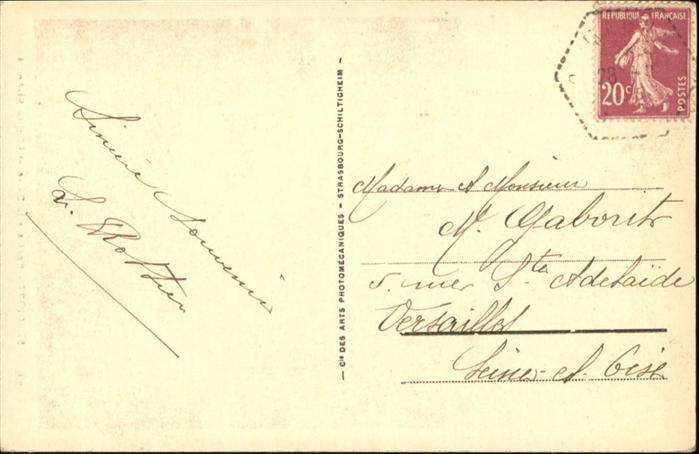 Sincère Souvenir
— Cie DES ARTS PHOTOMÉCANIQUES - STRASBOURG-SCHILTIGHEIM —
RÉPUBLIQUE FRANÇAISE
20c
POSTES
28
Madame et Monsieur
M. Gaborit
5. rue Ste Adelaïde
Versailles
Seine-et-Oise